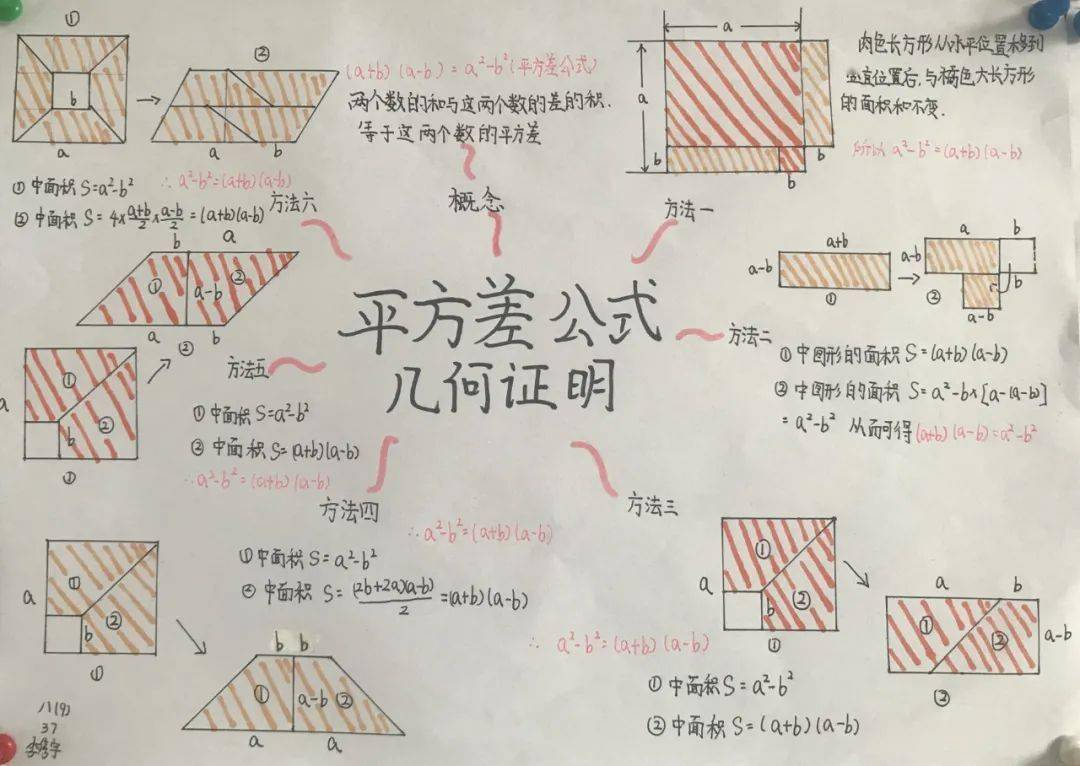 平方差公式
几何证明
概念
(a+b)(a-b)=a²-b²(平方差公式)
两个数的和与这两个数的差的积.
等于这两个数的平方差
方法一
a
a
b
b
b
肉色长方形从水平位置移到
竖直位置后,与橘色大长方形
的面积和不变.
所以 a²-b²=(a+b)(a-b)
方法二
a+b
a-b
①
a
b
a-b
b
②
a-b
①中图形的面积 S=(a+b)(a-b)
②中图形的面积 S=a²-b×[a-(a-b)]
=a²-b² 从而可得(a+b)(a-b)=a²-b²
方法三
①
a
b
②
①
a
b
①
②
a-b
②
∴ a²-b²=(a+b)(a-b)
①中面积S=a²-b²
②中面积 S=(a+b)(a-b)
方法四
①
a
b
②
①
b b
①
a-b
②
a
a
∴a²-b²=(a+b)(a-b)
①中面积 S=a²-b²
②中面积 S=(2b+2a)(a-b)/2=(a+b)(a-b)
方法五
b
a
①
a-b
②
a
b
②
①
a
b
②
①
①中面积S=a²-b²
②中面积S=(a+b)(a-b)
∴a²-b²=(a+b)(a-b)
方法六
①
b
a
②
a
b
①中面积S=a²-b² ∴a²-b²=(a+b)(a-b)
②中面积 S=4×(a+b)/2×(a-b)/2=(a+b)(a-b)
八(9)
37